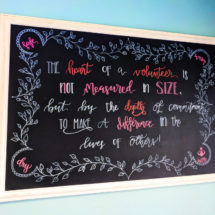 THE heart of a volunteer is
not Measured in SIZE,
but by the depth of commitment
TO MAKE A difference in the
lives of others!